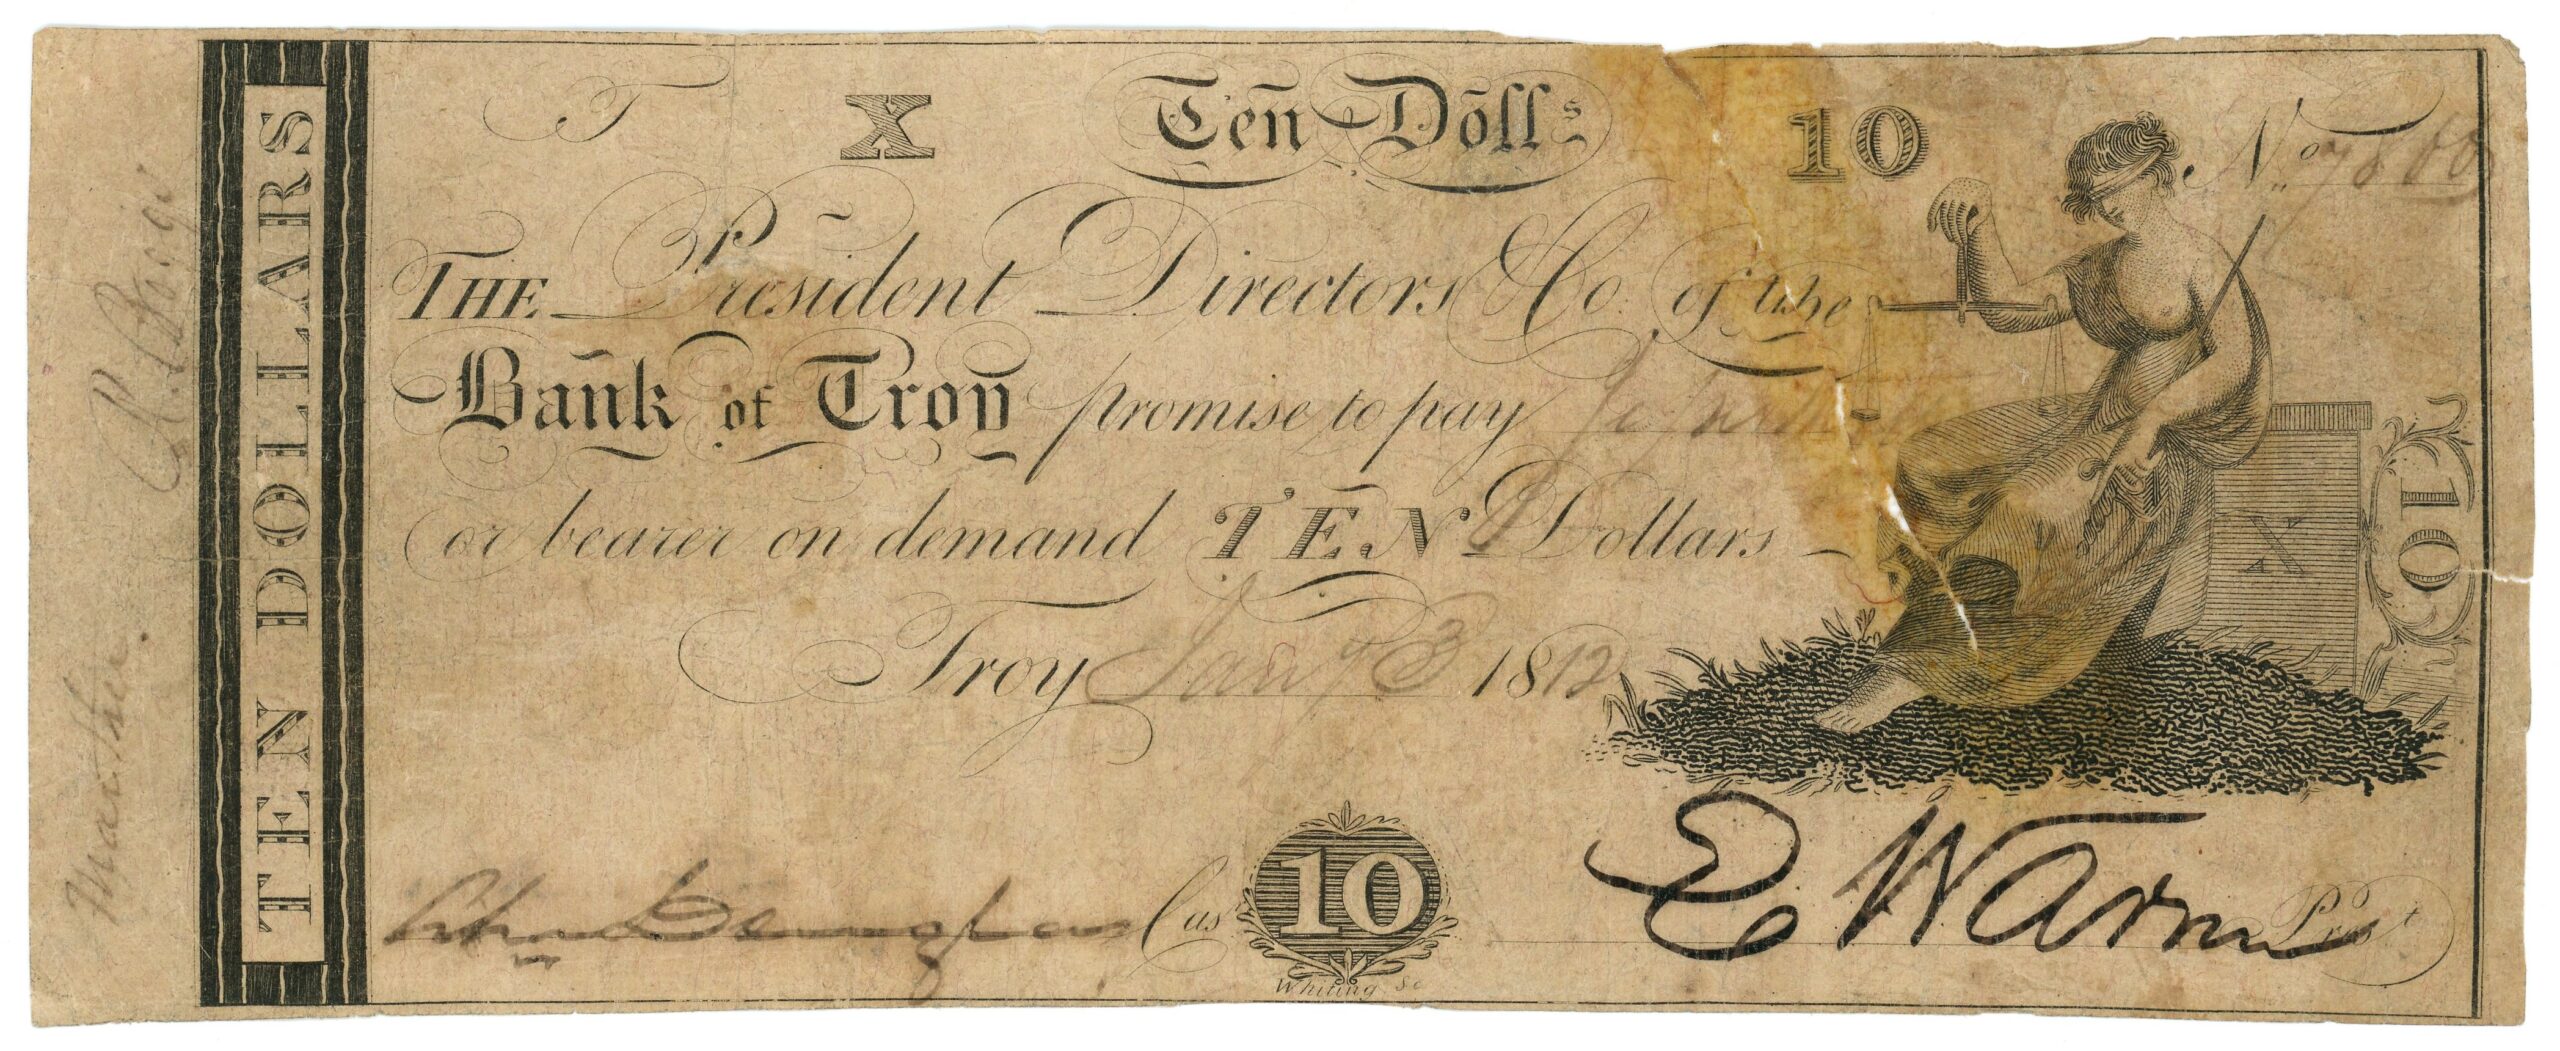 T X Ten Doll.s 10 No 7860
THE President Directors & Co. of the
Bank of Troy promise to pay
or bearer on demand TEN Dollars
Troy Jany 3 1812
Cas.r 10 E Warren Pres.t
Whiting Sc
TEN DOLLARS
10
X